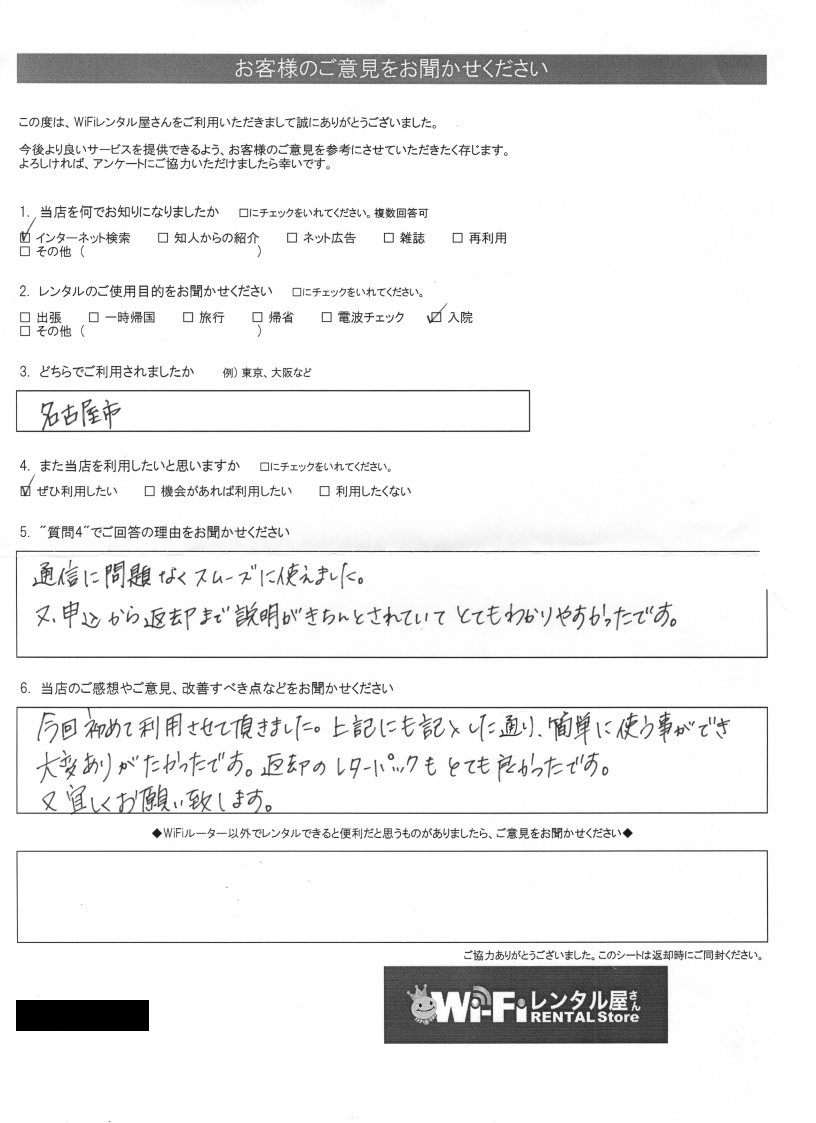 お客様のご意見をお聞かせください
この度は、WiFiレンタル屋さんをご利用いただきまして誠にありがとうございました。
今後より良いサービスを提供できるよう、お客様のご意見を参考にさせていただきたく存じます。
よろしければ、アンケートにご協力いただけましたら幸いです。
1. 当店を何でお知りになりましたか □にチェックをいれてください。複数回答可
☑ インターネット検索 □ 知人からの紹介 □ ネット広告 □ 雑誌 □ 再利用
□ その他 ( )
2. レンタルのご使用目的をお聞かせください □にチェックをいれてください。
□ 出張 □ 一時帰国 □ 旅行 □ 帰省 □ 電波チェック ☑ 入院
□ その他 ( )
3. どちらでご利用されましたか 例) 東京、大阪など
名古屋市
4. また当店を利用したいと思いますか □にチェックをいれてください。
☑ ぜひ利用したい □ 機会があれば利用したい □ 利用したくない
5. "質問4"でご回答の理由をお聞かせください
通信に問題なくスムーズに使えました。
又、申込から返却まで説明がきちんとされていてとてもわかりやすかったです。
6. 当店のご感想やご意見、改善すべき点などをお聞かせください
今回初めて利用させて頂きました。上記にも記入した通り、簡単に使う事ができ
大変ありがたかったです。返却のレターパックもとても良かったです。
又宜しくお願い致します。
◆WiFiルーター以外でレンタルできると便利だと思うものがありましたら、ご意見をお聞かせください◆
ご協力ありがとうございました。このシートは返却時にご同封ください。
Wi-Fiレンタル屋さん
RENTAL Store